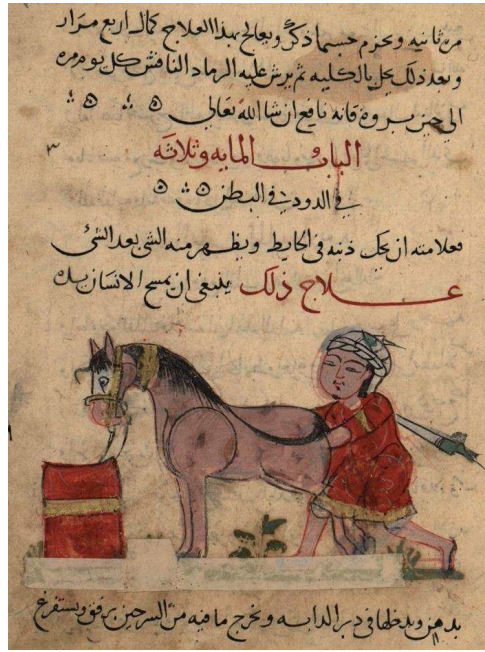 مرة ثانيه ويحزم حسبما ذكر ويعالج بهذا العلاج كمال اربع مرار
وبعد ذلك يحل بالكليه ثم يرش عليه الرماد الناقش كل يوم مره
الى حين بروه فانه نافع ان شا الله تعالى
الباب المايه وثلاثه
٣
في الدود في البطن
فعلامته ان يحك ذنبه في الحايط ويظهر منه الشى بعد الشى
علاج ذلك ينبغي ان يمسح الانسان يده
بدهن ويدخلها في دبر الدابه ويخرج ما فيه من السرجين برفق ويستفرغ